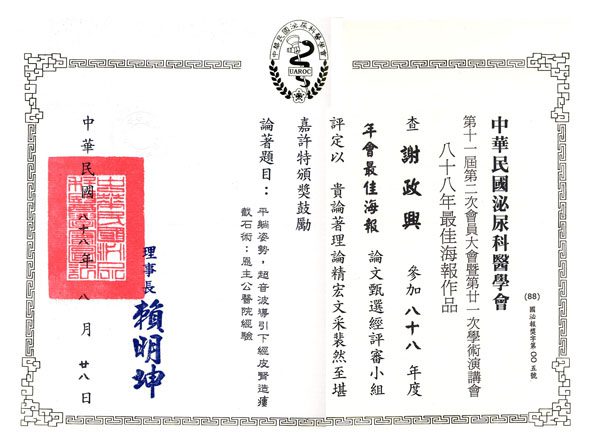 中華民國泌尿科醫學會
UAROC
中華民國泌尿科醫學會
第十一屆第二次會員大會暨第廿一次學術演講會
八十八年最佳海報作品
(88) 國泌報獎字第〇〇五號
查 謝政興 參加八十八年度
年會最佳海報 論文甄選經評審小組
評定以 貴論著理論精宏文采裴然至堪
嘉許特頒獎鼓勵
論著題目：平躺姿勢，超音波導引下經皮腎造瘻
截石術：恩主公醫院經驗
理事長 賴明坤
中華民國八十八年八月廿八日